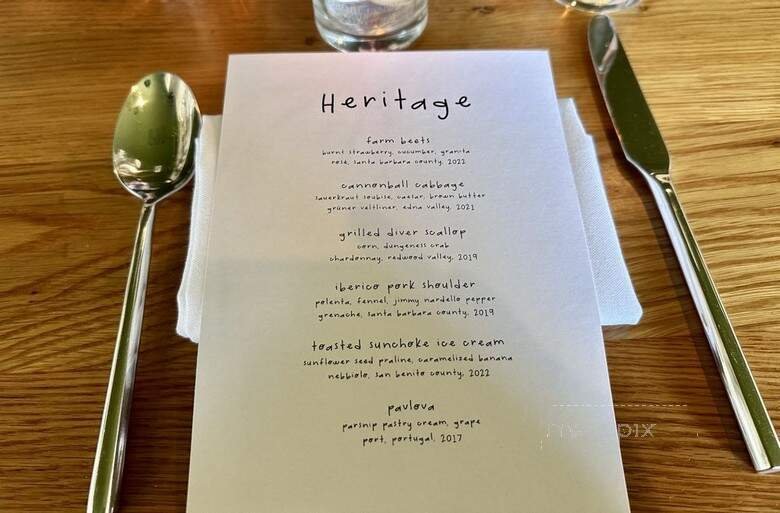 Heritage
farm beets
burnt strawberry, cucumber, granita
rosé, santa barbara county, 2022
cannonball cabbage
sauerkraut soubise, caesar, brown butter
grüner veltliner, edna valley, 2021
grilled diver scallop
corn, dungeness crab
chardonnay, redwood valley, 2019
iberico pork shoulder
polenta, fennel, jimmy nardello pepper
grenache, santa barbara county, 2019
toasted sunchoke ice cream
sunflower seed praline, caramelized banana
nebbiolo, san benito county, 2022
pavlova
parsnip pastry cream, grape
port, portugal, 2017